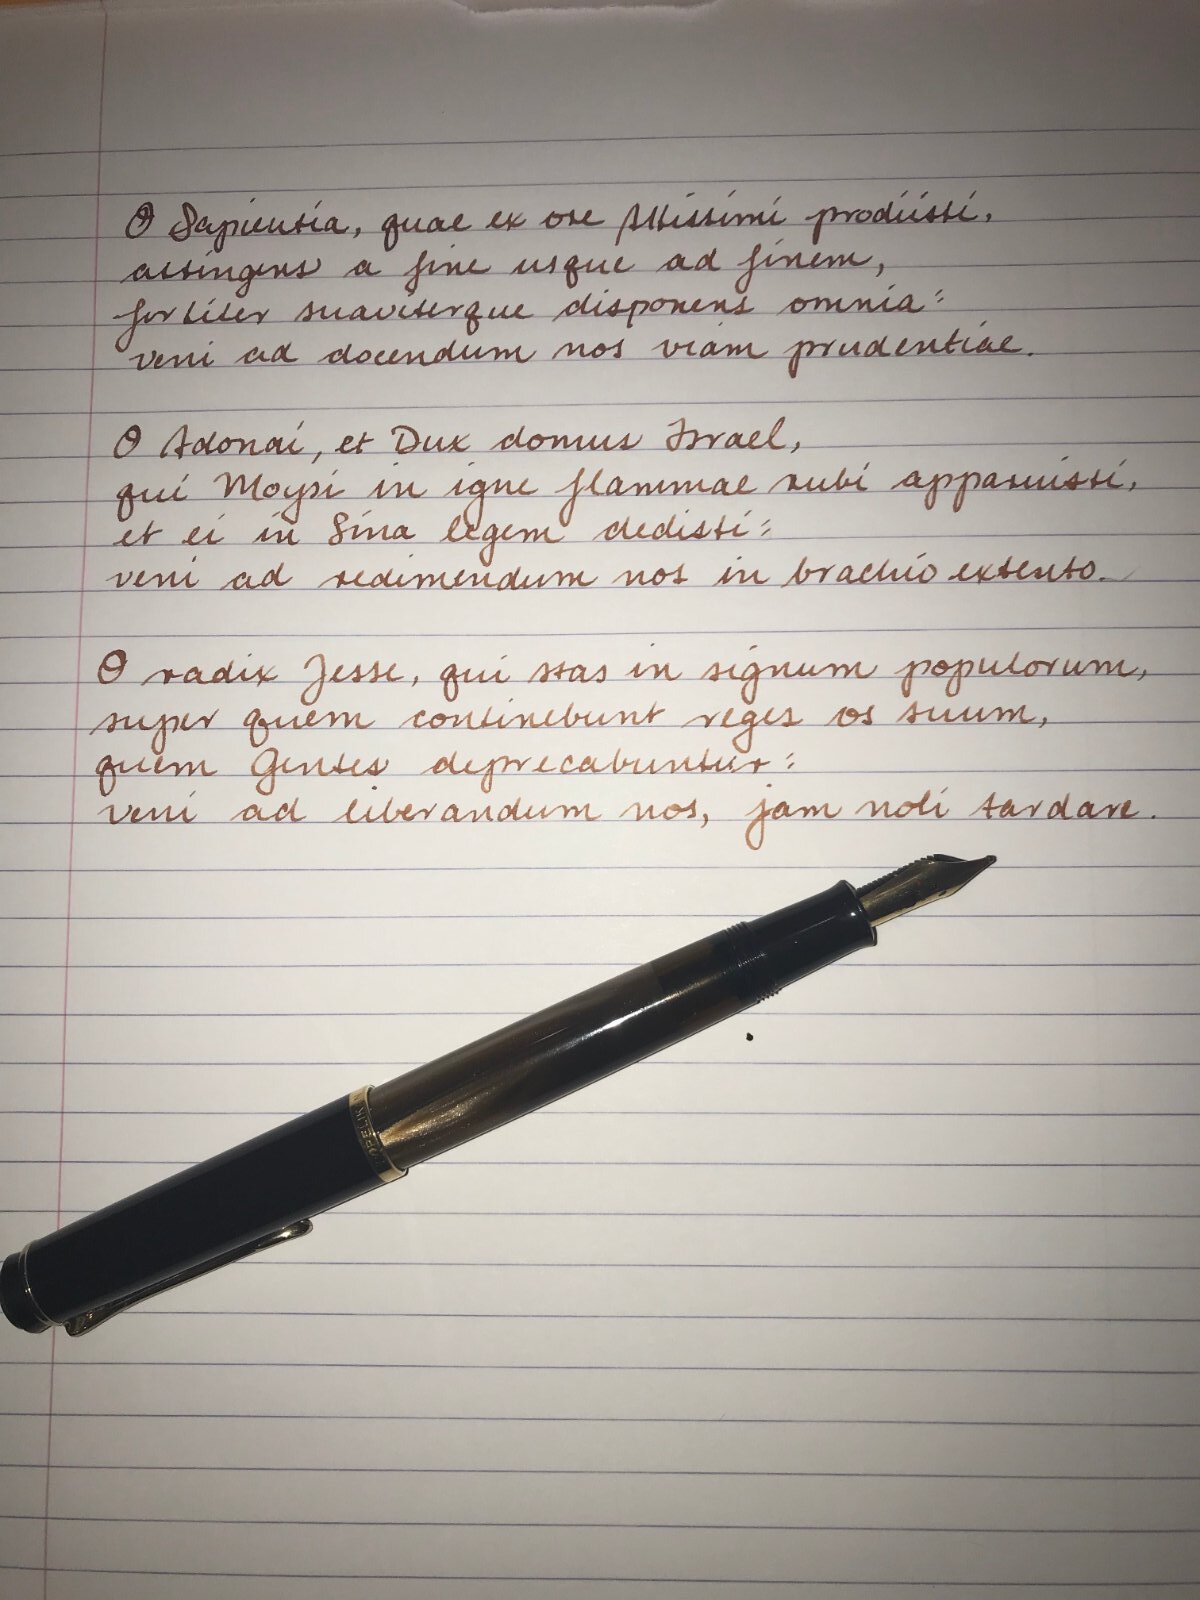 O Sapientia, quae ex ore Altissimi prodiisti,
attingens a fine usque ad finem,
fortiter suaviterque disponens omnia:
veni ad docendum nos viam prudentiae.
O Adonai, et Dux domus Israel,
qui Moysi in igne flammae rubi apparuisti,
et ei in Sina legem dedisti:
veni ad redimendum nos in brachio extento.
O radix Jesse, qui stas in signum populorum,
super quem continebunt reges os suum,
quem Gentes deprecabuntur:
veni ad liberandum nos, jam noli tardare.